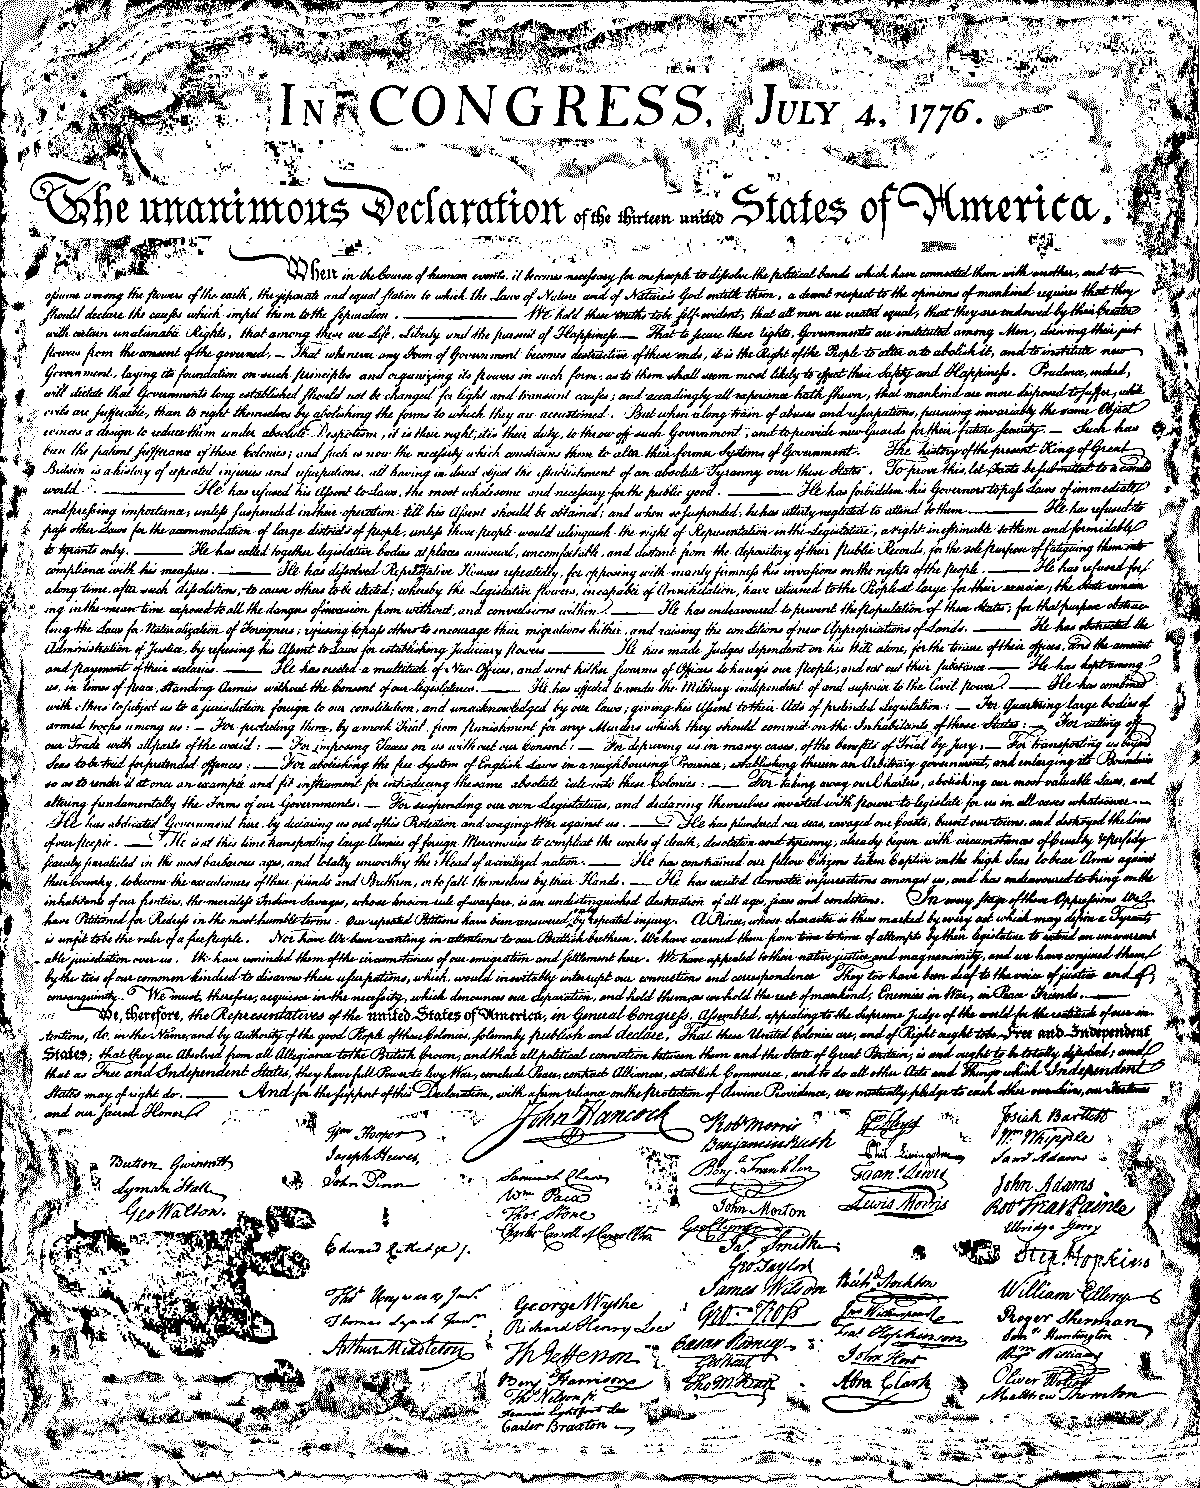 IN CONGRESS, JULY 4, 1776.
The unanimous Declaration of the thirteen united States of America.
When in the Course of human events, it becomes necessary for one people to dissolve the political bands which have connected them with another, and to
assume among the powers of the earth, the separate and equal station to which the Laws of Nature and of Nature's God entitle them, a decent respect to the opinions of mankind requires that they
should declare the causes which impel them to the separation. — We hold these truths to be self-evident, that all men are created equal, that they are endowed by their Creator
with certain unalienable Rights, that among these are Life, Liberty and the pursuit of Happiness.— That to secure these rights, Governments are instituted among Men, deriving their just
powers from the consent of the governed, — That whenever any Form of Government becomes destructive of these ends, it is the Right of the People to alter or to abolish it, and to institute new
Government, laying its foundation on such principles and organizing its powers in such form, as to them shall seem most likely to effect their Safety and Happiness. Prudence, indeed,
will dictate that Governments long established should not be changed for light and transient causes; and accordingly all experience hath shewn, that mankind are more disposed to suffer, while
evils are sufferable, than to right themselves by abolishing the forms to which they are accustomed. But when a long train of abuses and usurpations, pursuing invariably the same Object
evinces a design to reduce them under absolute Despotism, it is their right, it is their duty, to throw off such Government, and to provide new Guards for their future security. — Such has
been the patient sufferance of these Colonies; and such is now the necessity which constrains them to alter their former Systems of Government. The history of the present King of Great
Britain is a history of repeated injuries and usurpations, all having in direct object the establishment of an absolute Tyranny over these States. To prove this, let Facts be submitted to a candid
world. — He has refused his Assent to Laws, the most wholesome and necessary for the public good. — He has forbidden his Governors to pass Laws of immediate
and pressing importance, unless suspended in their operation till his Assent should be obtained; and when so suspended, he has utterly neglected to attend to them. — He has refused to
pass other Laws for the accommodation of large districts of people, unless those people would relinquish the right of Representation in the Legislature, a right inestimable to them and formidable
to tyrants only. — He has called together legislative bodies at places unusual, uncomfortable, and distant from the depository of their Public Records, for the sole purpose of fatiguing them into
compliance with his measures. — He has dissolved Representative Houses repeatedly, for opposing with manly firmness his invasions on the rights of the people. — He has refused for
a long time, after such dissolutions, to cause others to be elected; whereby the Legislative powers, incapable of Annihilation, have returned to the People at large for their exercise; the State remain
ing in the mean time exposed to all the dangers of invasion from without, and convulsions within. — He has endeavoured to prevent the population of these States; for that purpose obstruc-
ting the Laws for Naturalization of Foreigners; refusing to pass others to encourage their migrations hither, and raising the conditions of new Appropriations of Lands. — He has obstructed the
Administration of Justice, by refusing his Assent to Laws for establishing Judiciary powers. — He has made Judges dependent on his Will alone, for the tenure of their offices, and the amount
and payment of their salaries. — He has erected a multitude of New Offices, and sent hither swarms of Officers to harrass our people, and eat out their substance. — He has kept among
us, in times of peace, Standing Armies without the Consent of our legislatures. — He has affected to render the Military independent of and superior to the Civil power. — He has combined
with others to subject us to a jurisdiction foreign to our constitution, and unacknowledged by our laws; giving his Assent to their Acts of pretended Legislation: — For Quartering large bodies of
armed troops among us: — For protecting them, by a mock Trial, from punishment for any Murders which they should commit on the Inhabitants of these States: — For cutting off
our Trade with all parts of the world: — For imposing Taxes on us without our Consent: — For depriving us in many cases, of the benefits of Trial by Jury: — For transporting us beyond
Seas to be tried for pretended offences: — For abolishing the free System of English Laws in a neighbouring Province, establishing therein an Arbitrary government, and enlarging its Boundaries
so as to render it at once an example and fit instrument for introducing the same absolute rule into these Colonies: — For taking away our Charters, abolishing our most valuable Laws, and
altering fundamentally the Forms of our Governments: — For suspending our own Legislatures, and declaring themselves invested with power to legislate for us in all cases whatsoever. —
He has abdicated Government here, by declaring us out of his Protection and waging War against us. — He has plundered our seas, ravaged our Coasts, burnt our towns, and destroyed the lives
of our people. — He is at this time transporting large Armies of foreign Mercenaries to compleat the works of death, desolation and tyranny, already begun with circumstances of Cruelty & perfidy
scarcely paralleled in the most barbarous ages, and totally unworthy the Head of a civilized nation. — He has constrained our fellow Citizens taken Captive on the high Seas to bear Arms against
their Country, to become the executioners of their friends and Brethren, or to fall themselves by their Hands. — He has excited domestic insurrections amongst us, and has endeavoured to bring on the
inhabitants of our frontiers, the merciless Indian Savages, whose known rule of warfare, is an undistinguished destruction of all ages, sexes and conditions. In every stage of these Oppressions We
have Petitioned for Redress in the most humble terms: Our repeated Petitions have been answered only by repeated injury. A Prince, whose character is thus marked by every act which may define a Tyrant,
is unfit to be the ruler of a free people. Nor have We been wanting in attentions to our Brittish brethren. We have warned them from time to time of attempts by their legislature to extend an unwarrant
able jurisdiction over us. We have reminded them of the circumstances of our emigration and settlement here. We have appealed to their native justice and magnanimity, and we have conjured them
by the ties of our common kindred to disavow these usurpations, which, would inevitably interrupt our connections and correspondence They too have been deaf to the voice of justice and of
consanguinity. We must, therefore, acquiesce in the necessity, which denounces our Separation, and hold them, as we hold the rest of mankind, Enemies in War, in Peace Friends. —
We, therefore, the Representatives of the united States of America, in General Congress, Assembled, appealing to the Supreme Judge of the world for the rectitude of our in-
tentions, do, in the Name, and by Authority of the good People of these Colonies, solemnly publish and declare, That these United Colonies are, and of Right ought to be Free and Independent
States; that they are Absolved from all Allegiance to the British Crown, and that all political connection between them and the State of Great Britain, is and ought to be totally dissolved; and
that as Free and Independent States, they have full Power to levy War, conclude Peace, contract Alliances, establish Commerce, and to do all other Acts and Things which Independent
States may of right do. — And for the support of this Declaration, with a firm reliance on the protection of divine Providence, we mutually pledge to each other our Lives, our Fortunes
and our sacred Honor.
John Hancock
Button Gwinnett
Lyman Hall
Geo Walton.
Wm Hooper
Joseph Hewes,
John Penn
Edward Rutledge /.
Thos Heyward Junr.
Thomas Lynch Junr.
Arthur Middleton
Samuel Chase
Wm Paca
Thos Stone
Charles Carroll of Carrollton
George Wythe
Richard Henry Lee
Th Jefferson
Benj Harrison
Thos Nelson jr.
Francis Lightfoot Lee
Carter Braxton
Robt Morris
Benjamin Rush
Benja Franklin
John Morton
Geo Clymer
Jas Smith
Geo Taylor
James Wilson
Geo Ross
Caesar Rodney
Geo Read
Tho M:Kean
Wm Floyd
Phil. Livingston
Frans Lewis
Lewis Morris
Richd Stockton
Jno Witherspoon
Fras Hopkinson
John Hart
Abra Clark
Josiah Bartlett
Wm Whipple
Saml Adams
John Adams
Robt Treat Paine
Elbridge Gerry
Step. Hopkins
William Ellery
Roger Sherman
Saml Huntington
Wm Williams
Oliver Wolcott
Matthew Thornton